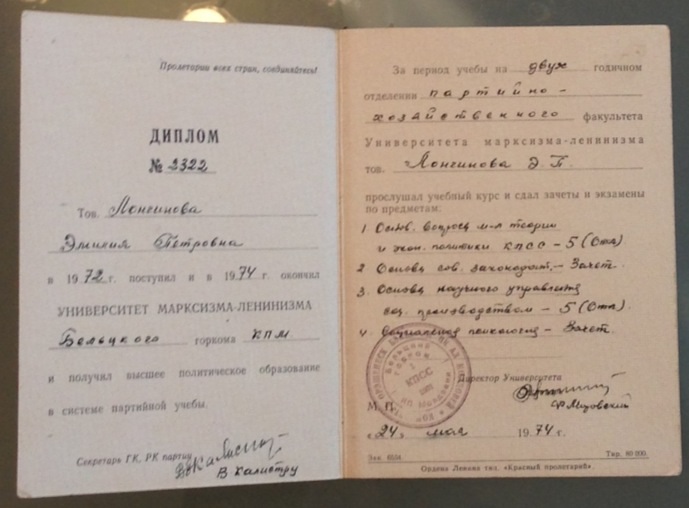 Пролетарии всех стран, соединяйтесь!
ДИПЛОМ
№ 2322
Тов. Лонгинова
Эмилия Петровна
в 1972 г. поступил и в 1974 г. окончил
УНИВЕРСИТЕТ МАРКСИЗМА-ЛЕНИНИЗМА
Бельцкого горкома КПМ
и получил высшее политическое образование
в системе партийной учебы.
Секретарь ГК, РК партии
В Калистру
За период учебы на двух годичном
отделении партийно-
хозяйственного факультета
Университета марксизма-ленинизма
тов. Лонгинова Э. П.
прослушал учебный курс и сдал зачеты и экзамены
по предметам:
1 Основ. вопросы м-л теории
и экон. политики КПСС - 5 (Отл).
2 Основы сов. законодат. - Зачет.
3. Основы научного управления
соц. производством - 5 (Отл).
4. Социальная психология - Зачет.
КПСС
Директор Университета
М. П.
«24» мая 1974 г.
Зак. 6534. Тир. 80 000.
Ордена Ленина тип. «Красный пролетарий».